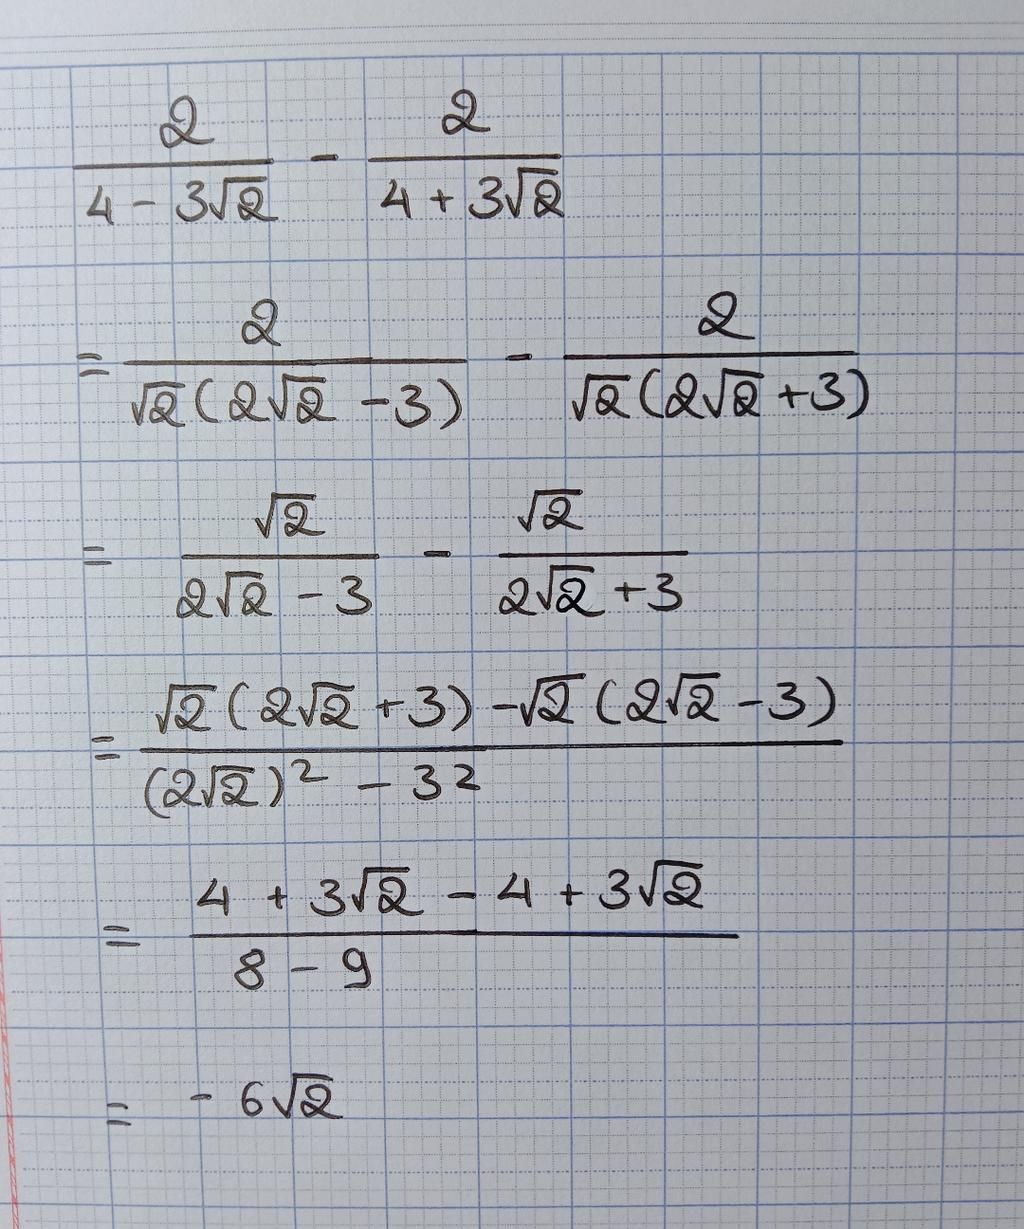 2/(4 - 3√2) - 2/(4 + 3√2)
= 2/(√2(2√2 - 3)) - 2/(√2(2√2 + 3))
= √2/(2√2 - 3) - √2/(2√2 + 3)
= (√2(2√2 + 3) - √2(2√2 - 3))/((2√2)² - 3²)
= (4 + 3√2 - 4 + 3√2)/(8 - 9)
= - 6√2